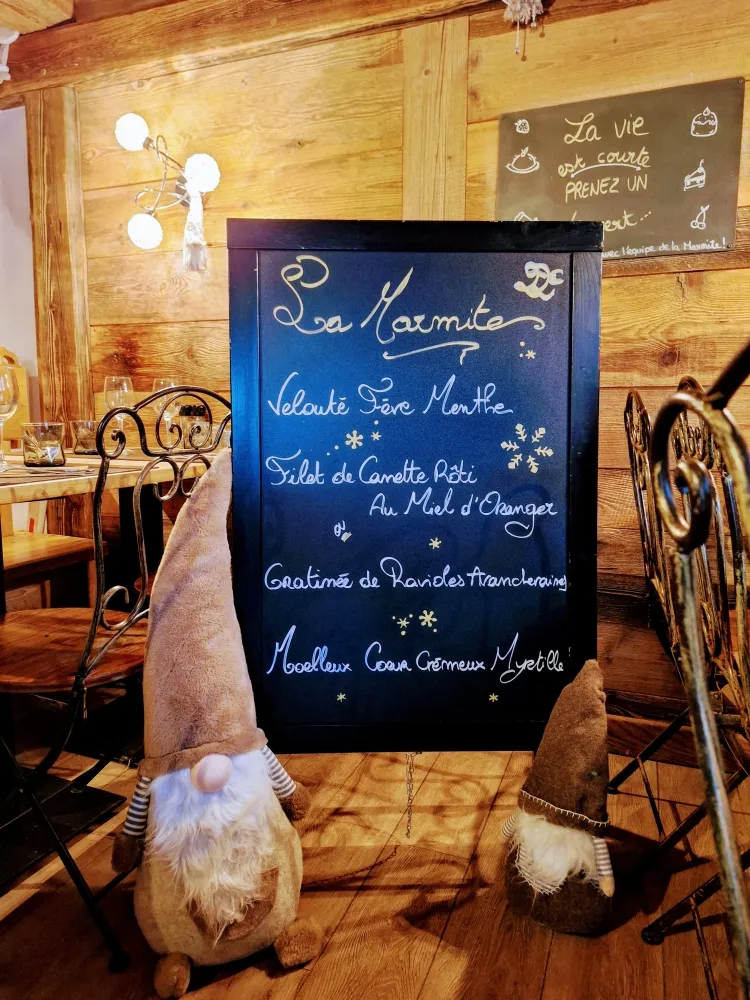 La vie
est courte
PRENEZ UN
avec l'équipe de la Marmite!
La Marmite
Velouté Fève Menthe
Filet de Canette Rôti
Au Miel d'Oranger
Gratinée de Ravioles
Moelleux Coeur Crémeux Myrtille